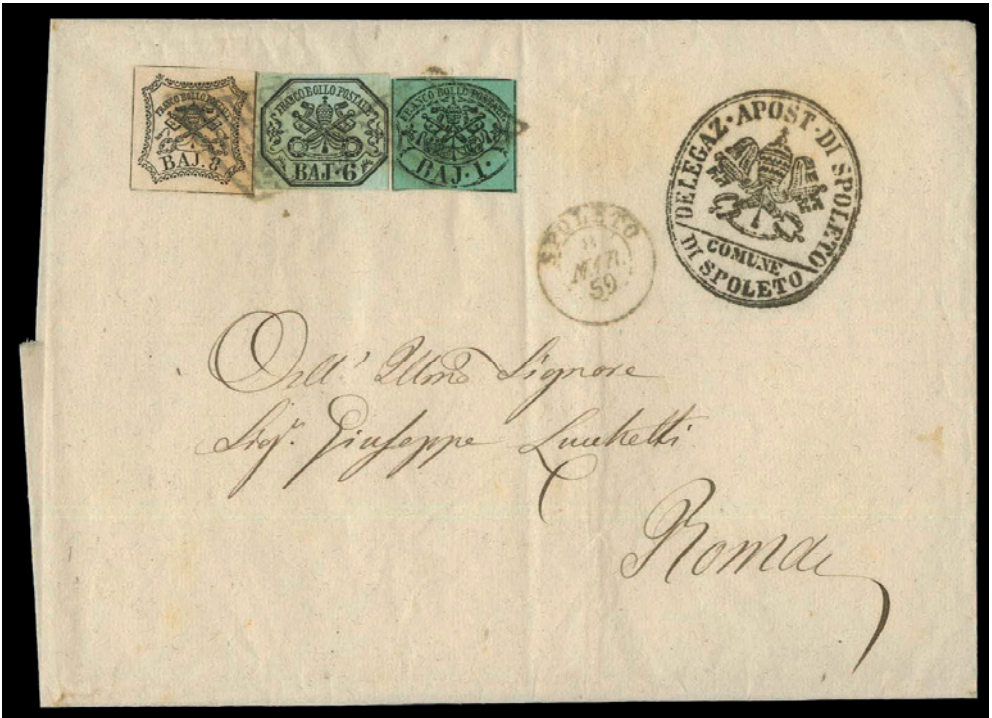 FRANCO BOLLO POSTALE
BAJ. 8
FRANCO BOLLO POSTALE
BAJ·6
FRANCO BOLLO POSTALE
BAJ·1·
DELEGAZ·APOST·DI SPOLETO
COMUNE
DI SPOLETO
SPOLETO
MAR.
59
Dell' Illmo Signore
Sigr. Giuseppe Luchetti
Roma